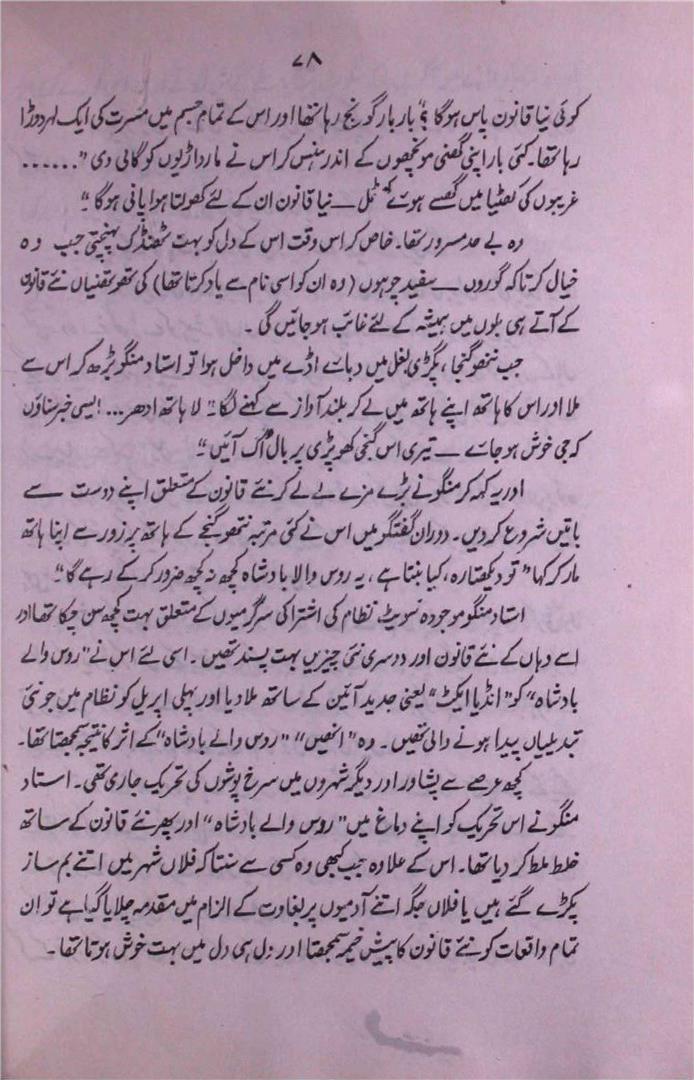 ۷۸
کوئی نیا قانون پاس ہوگا؟“ بار بار گونج رہا تھا اور اس کے تمام جسم میں مسرت کی ایک لہر دوڑا
رہا تھا۔ کئی بار اپنی گھنی مونچھوں کے اندر ہنس کر اس نے مارواڑیوں کو گالی دی ”......
غریبوں کی کھٹیا میں گھسے ہوئے کھٹمل — نیا قانون ان کے لئے کھولتا ہوا پانی ہوگا“
وہ بے حد مسرور تھا۔ خاص کر اس وقت اس کے دل کو بہت ٹھنڈک پہنچتی جب وہ
خیال کرتا کہ گوروں — سفید چوہوں (وہ ان کو اسی نام سے یاد کرتا تھا) کی تھوتھنیاں نئے قانون
کے آتے ہی بلوں میں ہمیشہ کے لئے غائب ہو جائیں گی۔
جب نتھو گنجا، پگڑی بغل میں دبائے اڈے میں داخل ہوا تو استاد منگو بڑھ کر اس سے
ملا اور اس کا ہاتھ اپنے ہاتھ میں لے کر بلند آواز سے کہنے لگا:” لا ہاتھ ادھر... ایسی خبر سناؤں
کہ جی خوش ہو جائے — تیری اس گنجی کھوپڑی پر بال اُگ آئیں“
اور یہ کہہ کر منگو نے بڑے مزے لے لے کر نئے قانون کے متعلق اپنے دوست سے
باتیں شروع کر دیں۔ دوران گفتگو میں اس نے کئی مرتبہ نتھو گنجے کے ہاتھ پر زور سے اپنا ہاتھ
مار کر کہا ”تو دیکھتا رہ، کیا بنتا ہے، یہ روس والا بادشاہ کچھ نہ کچھ ضرور کر کے رہے گا“
استاد منگو موجودہ سویٹ نظام کی اشتراکی سرگرمیوں کے متعلق بہت کچھ سن چکا تھا اور
اسے وہاں کے نئے قانون اور دوسری نئی چیزیں بہت پسند تھیں۔ اسی لئے اس نے ”روس والے
بادشاہ“ کو ”انڈیا ایکٹ“ یعنی جدید آئین کے ساتھ ملا دیا اور پہلی اپریل کو نظام میں جو نئی
تبدیلیاں پیدا ہونے والی تھیں۔ وہ ”انھیں“ ”روس والے بادشاہ“ کے اثر کا نتیجہ سمجھتا تھا۔
کچھ عرصے سے پشاور اور دیگر شہروں میں سرخ پوشوں کی تحریک جاری تھی۔ استاد
منگو نے اس تحریک کو اپنے دماغ میں ”روس والے بادشاہ“ اور پھر نئے قانون کے ساتھ
خلط ملط کر دیا تھا۔ اس کے علاوہ جب کبھی وہ کسی سے سنتا کہ فلاں شہر میں اتنے بم ساز
پکڑے گئے ہیں یا فلاں جگہ اتنے آدمیوں پر بغاوت کے الزام میں مقدمہ چلایا گیا ہے تو ان
تمام واقعات کو نئے قانون کا پیش خیمہ سمجھتا اور دل ہی دل میں بہت خوش ہوتا تھا۔